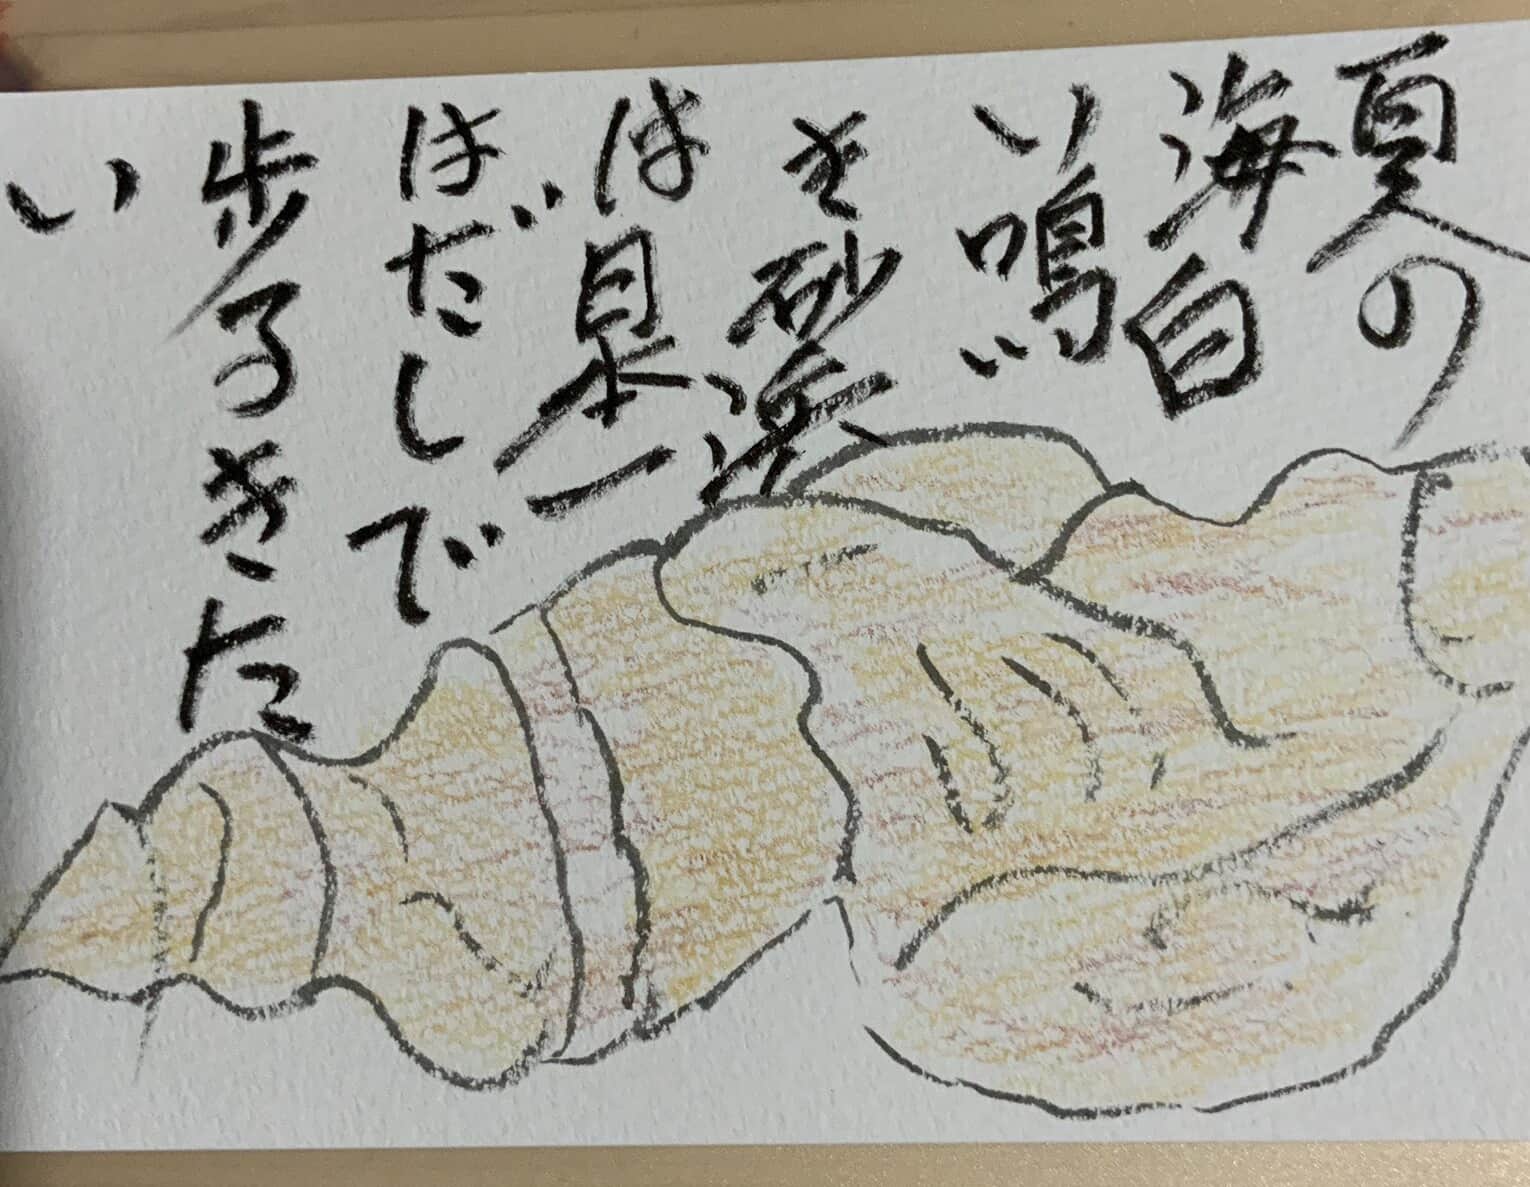 夏の
海白
い鳴
き砂浜
は日本一
はだしで
歩るきた
い